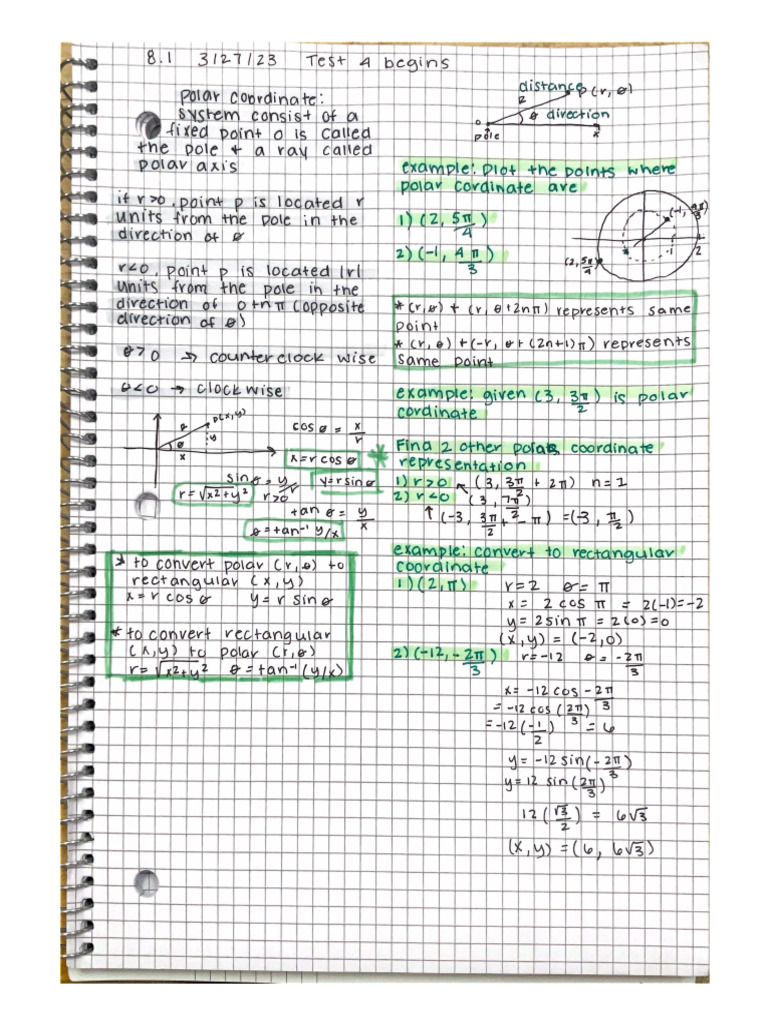 8.1 3/27/23 Test 4 begins
polar coordinate:
system consist of a
fixed point o is called
the pole + a ray called
polar axis
if r>0, point p is located r
units from the pole in the
direction of θ
r<0, point p is located |r|
units from the pole in the
direction of θ+nπ (opposite
direction of θ)
θ>0 → counterclock wise
θ<0 → clockwise
p(x,y)
y
θ
x
cos θ = x/r
x=r cos θ
sin θ = y/r
y=r sin θ
r=√x²+y² r>0
tan θ = y/x
θ=tan⁻¹ y/x
* to convert polar (r,θ) to
rectangular (x,y)
x=r cos θ y=r sin θ
* to convert rectangular
(x,y) to polar (r,θ)
r=√x²+y² θ=tan⁻¹ (y/x)
distance p(r,θ)
2
θ direction
o
pole
x
example: plot the points where
polar cordinate are
1) (2, 5π/4)
2) (-1, 4π/3)
(-1, 4π/3)
-1 2
(2, 5π/4)
* (r,θ) + (r, θ+2nπ) represents same
point
* (r,θ) + (-r, θ+(2n+1)π) represents
same point
example: given (3, 3π/2) is polar
cordinate
Find 2 other points coordinate
representation
1) r>0 ↖ (3, 3π/2 + 2π) n=1
2) r<0 (3, 7π/2)
↑ (-3, 3π/2 + - π) =(-3, π/2)
example: convert to rectangular
coordinate
1) (2,π) r=2 θ=π
x= 2 cos π = 2(-1)=-2
y= 2sin π = 2(0)=0
(x,y) = (-2,0)
2) (-12, -2π/3) r=-12 θ= -2π/3
x= -12 cos -2π/3
= -12 cos (2π/3)
= -12 (-1/2) = 6
y= -12 sin(-2π/3)
y= 12 sin(2π/3)
12 (√3/2) = 6√3
(x,y) =(6, 6√3)